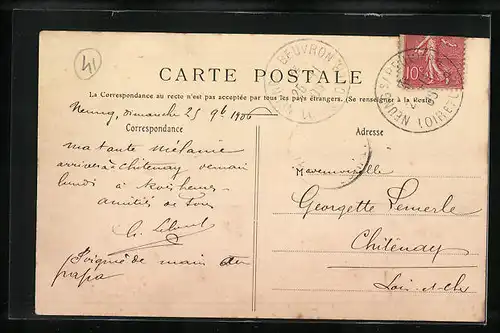 41
CARTE POSTALE
La Correspondance au recto n'est pas acceptée par tous les pays étrangers. (Se renseigner à la Poste)
Neung, dimanche 25 9bre 1906
Correspondance
Adresse
ma tante Mélanie
arrivera à Chitenay demain
lundi à trois heures
amitiés de tous
Soigné de main du
papa
Mademoiselle
Georgette Lemerle
Chitenay
Loir-et-Cher
10c
BEUVRON
NEUNG S
LOIR-ET-